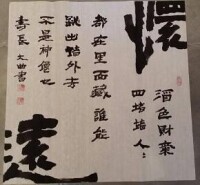 懷
酒色財氣
四堵墙人々
都在里面藏誰能
跳出墙外者
不是神僊也
壽長 文曲書
遠